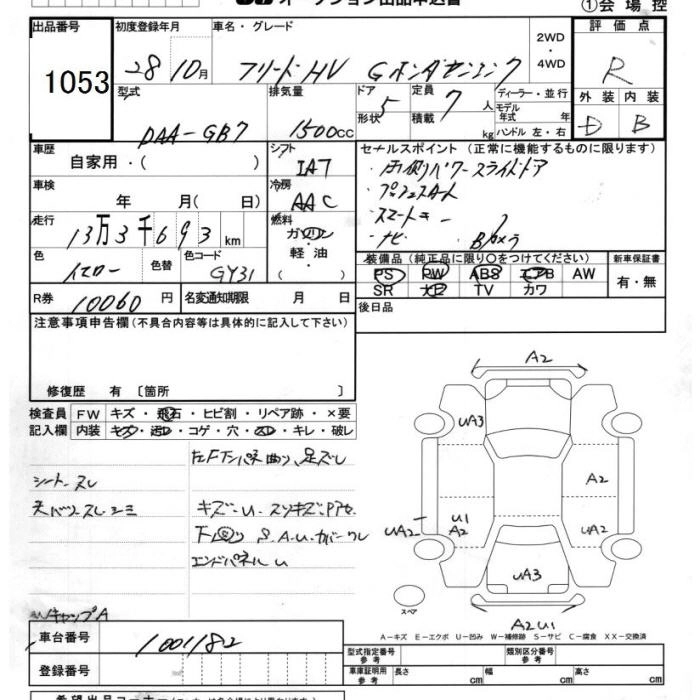 オークション出品申込書
①会場控
出品番号 1053
初度登録年月 28 10月
車名・グレード フリードHV Gホンダセンシング
2WD・4WD
評価点 R
外装 D 内装 B
型式 DAA-GB7
排気量 1500cc
ドア形状 5
定員 7人
積載 kg
ディーラー・並行
モデル年式 年
ハンドル 左・右
車歴 自家用・( )
シフト IA7
車検 年 月( 日)
冷房 AAC
走行 13万3千693km
燃料 ガソリン・軽油・( )
色 イエロー
色替
色コード GY31
R券 10060円
名変通知期限 月 日
セールスポイント(正常に機能するものに限ります)
・両側パワースライドドア
・プッシュスタート
・スマートキー
・ナビ Bカメラ
装備品(純正品に限り○をつけてください)
PS PW ABS エアB AW
SR 大圧 TV カワ
新車保証書 有・無
後日品
注意事項申告欄(不具合内容等は具体的に記入して下さい)
修復歴 有 〔箇所 〕
検査員記入欄
FW キズ・飛石・ヒビ割・リペア跡・×要
内装 キズ・汚レ・コゲ・穴・スレ・キレ・破レ
シートスレ
天バリスレシミ
Wキャップ A
左Fインパネ曲り、足ズレ
キズ・U・スリキズ
下回り S.A.U.カバーワレ
エンドパネル U
A2
UA3
A2
UA2
U1
A2
UA2
UA3
A2U1
スペア
A－キズ E－エクボ U－凹み W－補修跡 S－サビ C－腐食 XX－交換済
車台番号 1001182
登録番号
型式指定番号 参考
類別区分番号 参考
車庫証明用 参考 長さ cm 幅 cm 高さ cm
希望出品コーナー